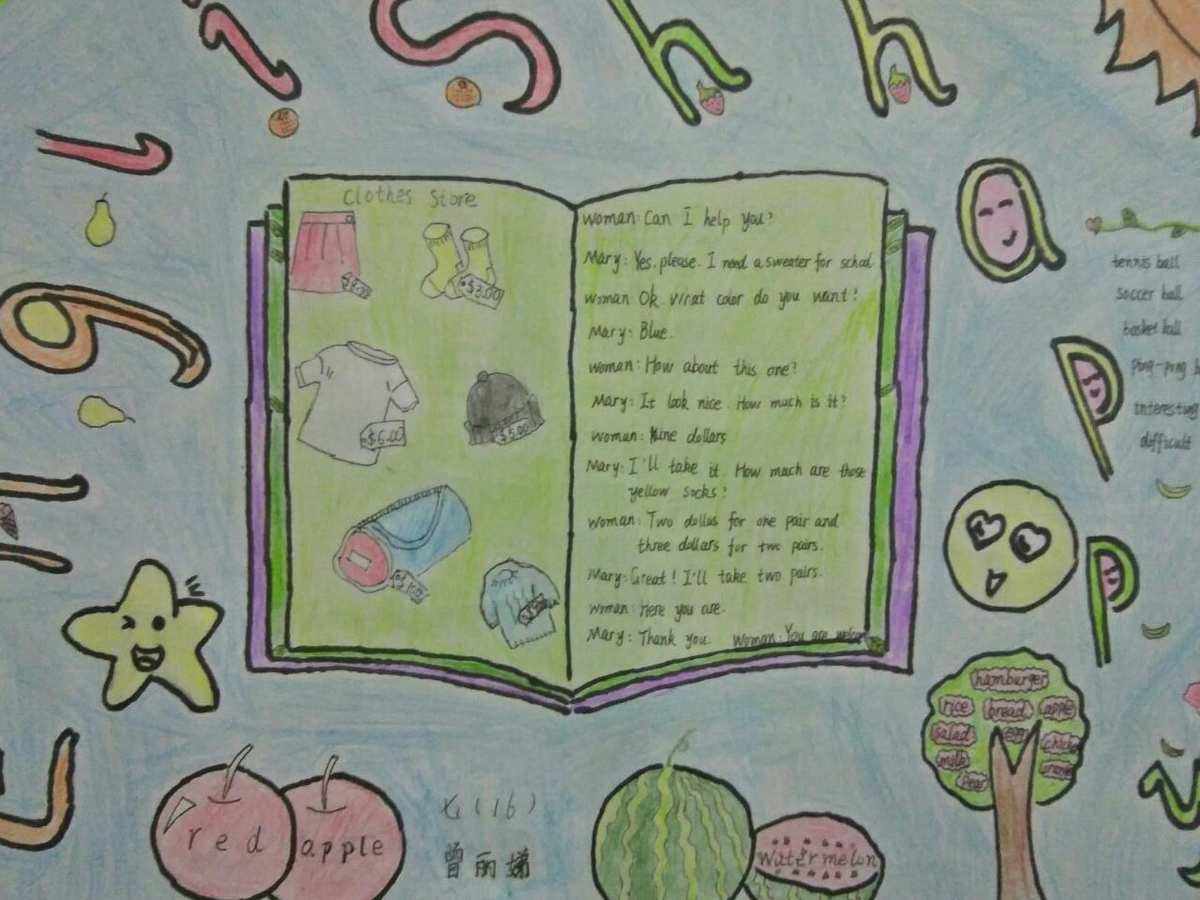 English
Happy
Clothes Store
$3.00
$6.00
$5.00
woman: Can I help you?
Mary: Yes, please. I need a sweater for school.
woman: Ok. What color do you want?
Mary: Blue.
woman: How about this one?
Mary: It look nice. How much is it?
woman: Nine dollars
Mary: I'll take it. How much are those
yellow socks?
woman: Two dollas for one pair and
three dollars for two pairs.
Mary: Great! I'll take two pairs.
woman: Here you are.
Mary: Thank you. Woman: You are welcom
tennis ball
soccer ball
basket ball
ping-pong b
interesting
difficult
hamburger
rice bread apple
salad egg
milk
pear
red apple
七(16)
曾丽娣
Watermelon